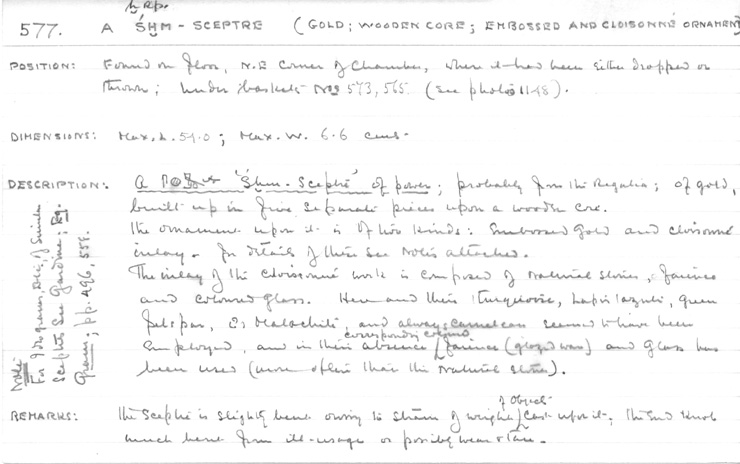 577. A SḤM-SCEPTRE (GOLD; WOODEN CORE; EMBOSSED AND CLOISONNÉ ORNAMENT)
POSITION: Found on floor, N.E. Corner of Chamber, where it had been either dropped or
thrown; under baskets Nos 573, 565. (See photo 1148).
DIMENSIONS: Max. L. 54.0; Max. W. 6.6 cms.
DESCRIPTION: A "Sḥm-Sceptre" of power; probably from the Regalia; of gold,
built up in five separate pieces upon a wooden core.
The ornament upon it is of two kinds: Embossed gold and cloisonné
inlay. For details of these see Notes attached.
The inlay of the cloisonné work is composed of natural stones, faience
and coloured glass. Here and there turquoise, lapis lazuli, green
felspar, or Malachite, and always carnelian seemed to have been
employed, and in their absence corresponding coloured faience (glazed ware) and glass has
been used (more often than the natural stones).
Note:
For 9th gramm. Det. of Similar
Sceptre see Gardiner; Eg.
Gram; pp. 496, 559.
REMARKS: The Sceptre is slightly bent owing to strain of weight of objects cast upon it; the end knob
much bent from ill-usage or possibly wear & tare.